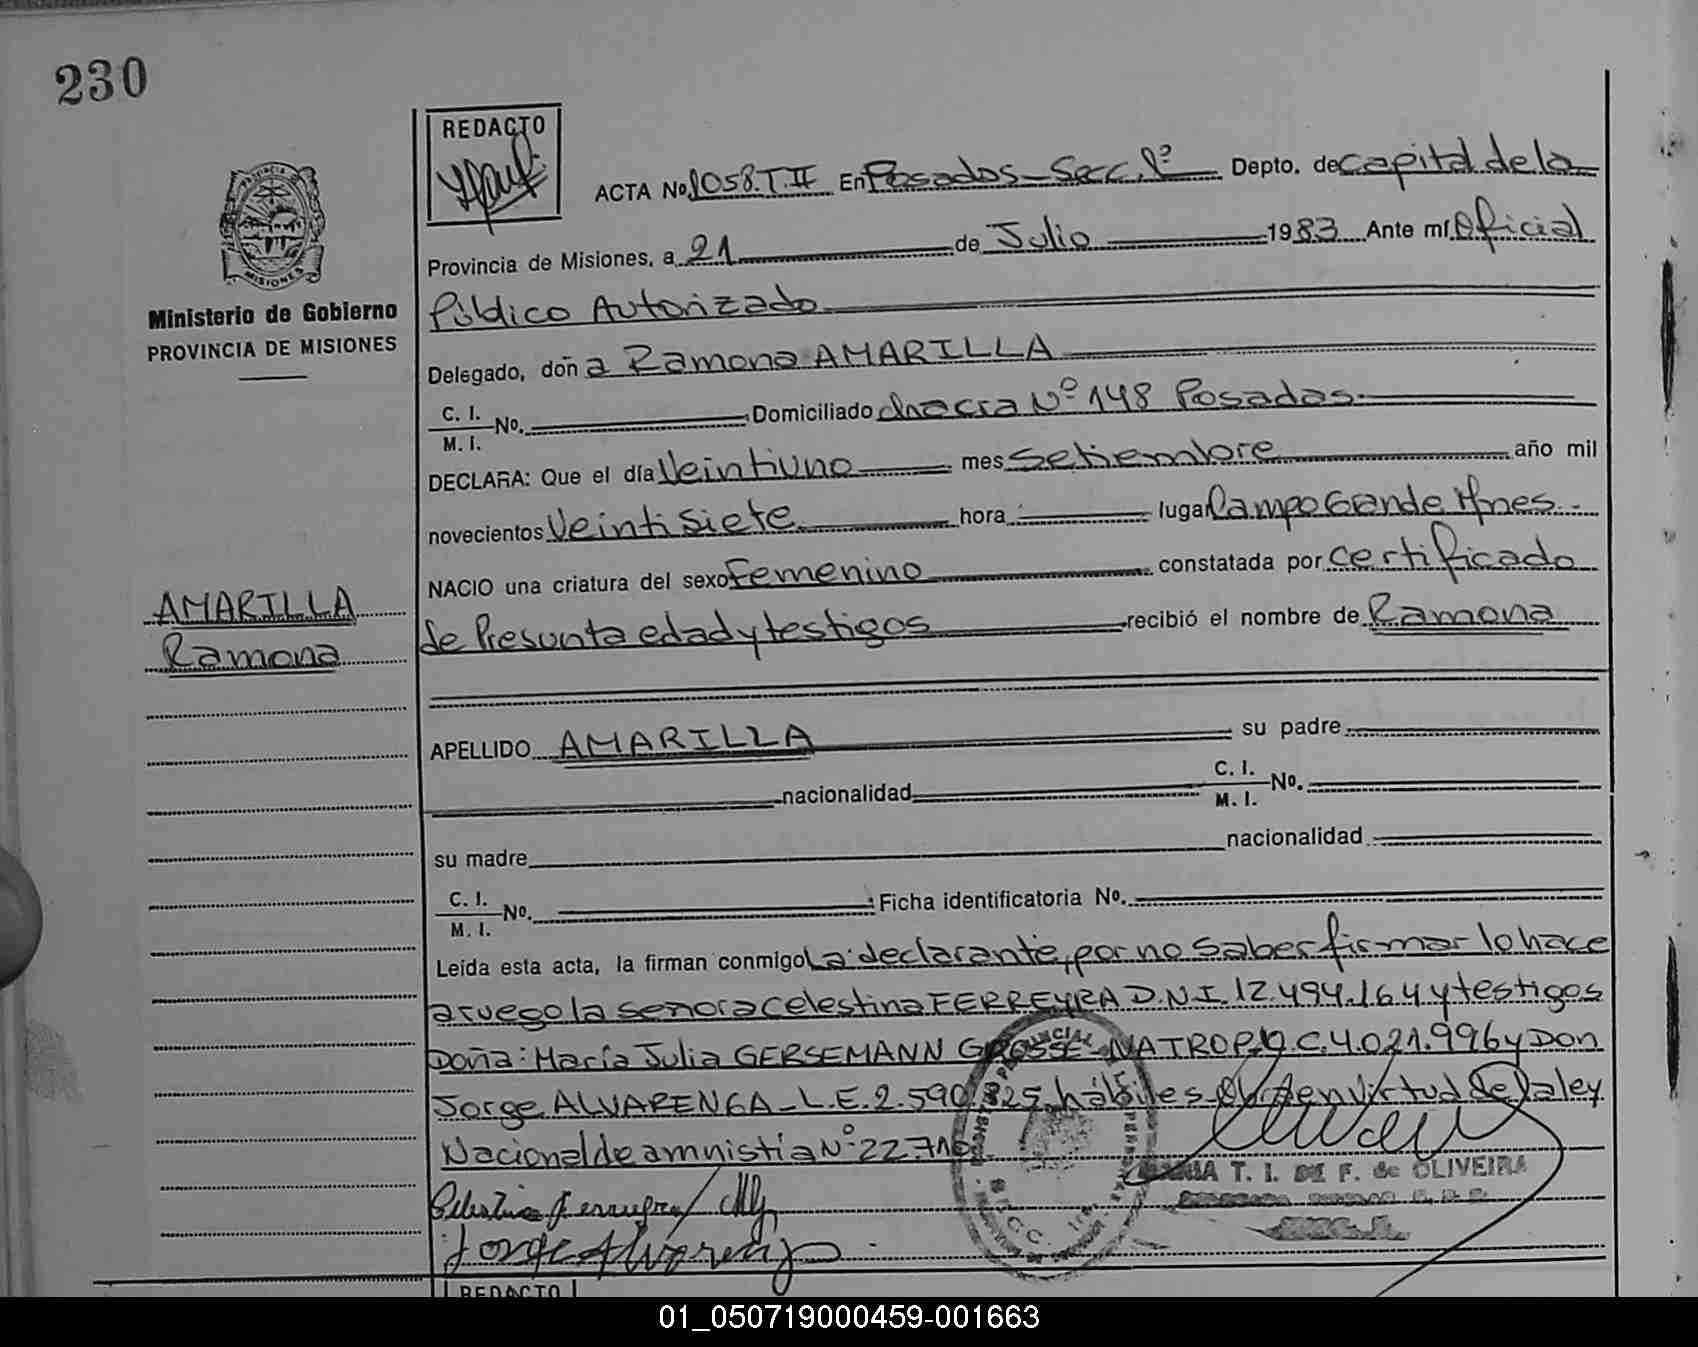 230
REDACTO
ACTA No 1058.T.II En Posadas - Secc. 1ª Depto. de Capital de la
Provincia de Misiones, a 21 de Julio 1983 Ante mí Oficial
Público Autorizado
Delegado, doña Ramona AMARILLA
C. I.
M. I. No. Domiciliado chacra Nº 148 Posadas.
DECLARA: Que el día Veintiuno mes Setiembre año mil
novecientos Veintisiete hora lugar Campo Grande Mnes.
NACIO una criatura del sexo Femenino constatada por certificado
de Presunta edad y testigos recibió el nombre de Ramona
APELLIDO AMARILLA su padre
nacionalidad C. I.
M. I. No.
su madre nacionalidad
C. I.
M. I. No. Ficha identificatoria No.
Leída esta acta, la firman conmigo La declarante, por no saber firmar lo hace
a ruego la señora Celestina FERREYRA D.N.I. 12.494.164 y testigos
Doña: María Julia GERSEMANN GROSSE-NATROP, C. 4.021.996 y Don
Jorge ALVARENGA - L.E. 2.590.825, hábiles en virtud de la ley
Nacional de amnistía Nº 22.710
Celestina Ferreyra
Jorge Alvarenga
T. I. DE F. de OLIVEIRA
MISIONES
Ministerio de Gobierno
PROVINCIA DE MISIONES
AMARILLA
Ramona
REDACTO
01_050719000459-001663